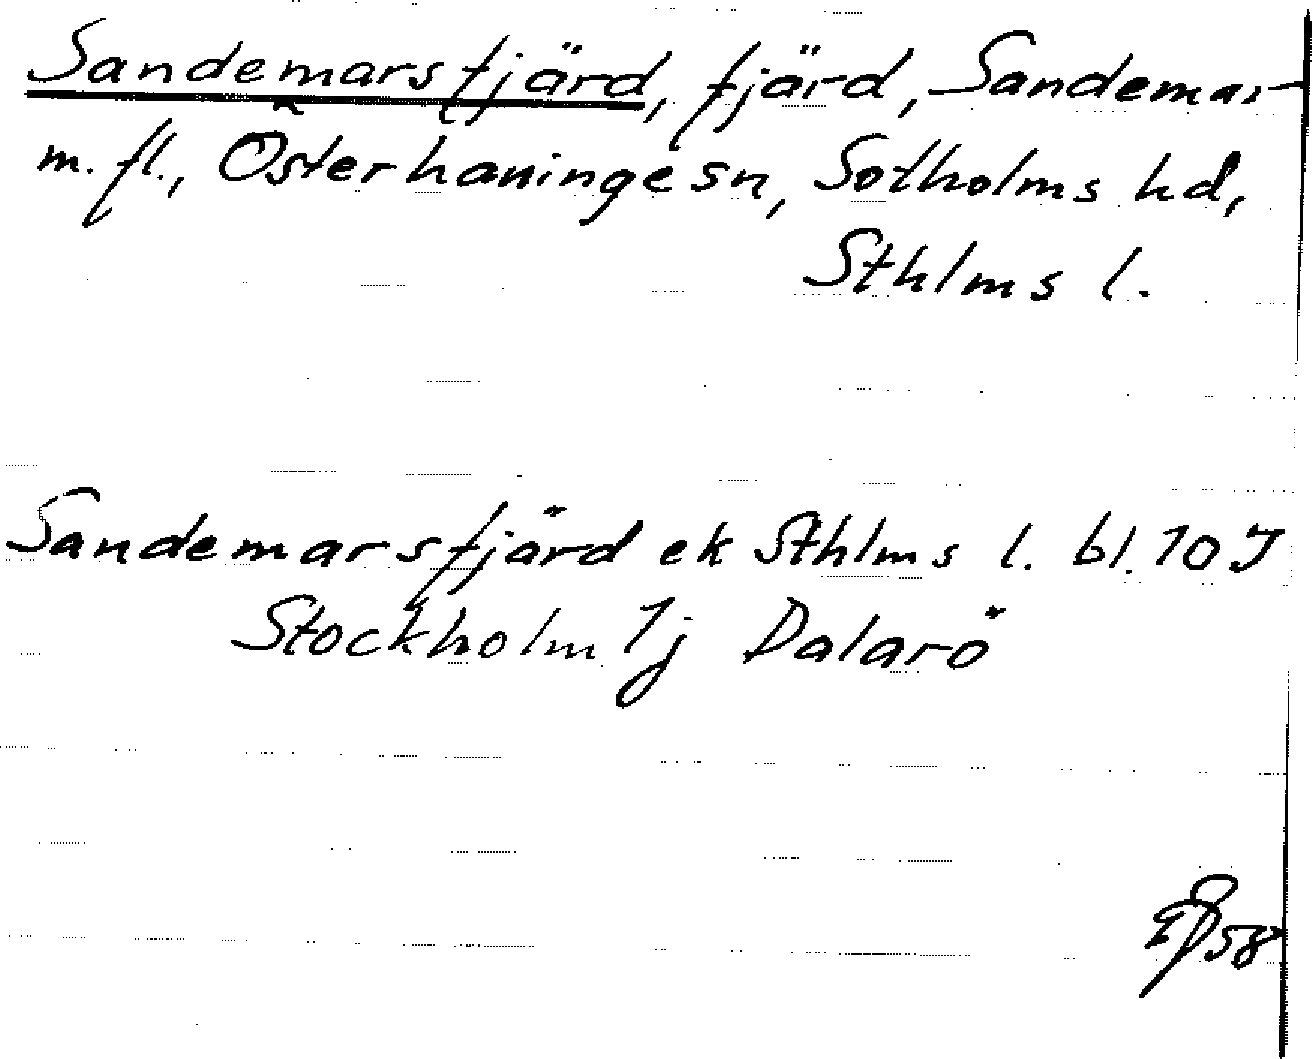 Sandemarsfjärd, fjärd, Sandemar
m. fl., Österhaninge sn, Sotholms hd,
Sthlms l.
Sandemarsfjärd ek Sthlms l. bl. 10 J
Stockholm 1j Dalarö
58